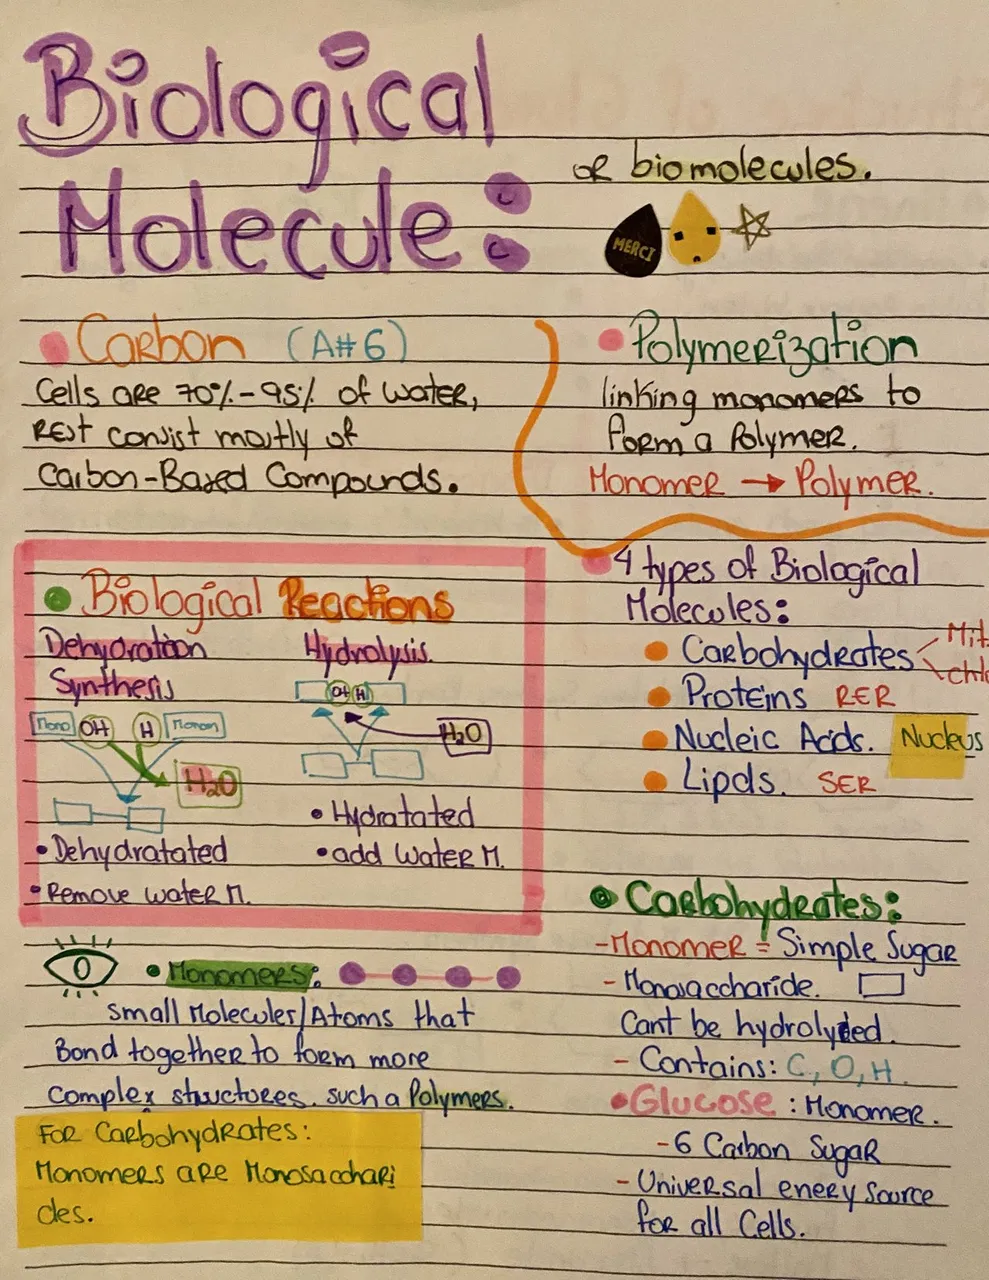 Biological
Molecule:
or biomolecules.
MERCI
Carbon (A#6)
Cells are 70%-95% of water,
rest consist mostly of
Carbon-Based Compounds.
Polymerization
linking monomers to
form a Polymer.
Monomer → Polymer.
Biological Reactions
Dehydration
Synthesis
Mono OH H Monom
H₂O
• Dehydratated
• Remove water M.
Hydrolysis.
OH H
H₂O
• Hydratated
• add water M.
4 types of Biological
Molecules:
Carbohydrates
Mit
chlo
Proteins RER
Nucleic Acids. Nucleus
Lipds. SER
• Monomers:
small Moleculer/Atoms that
Bond together to form more
complex structures. such a Polymers.
For Carbohydrates:
Monomers are Monosacchari
des.
Carbohydrates:
-Monomer = Simple Sugar
- Monosaccharide.
Cant be hydrolyded.
- Contains: C, O, H.
•Glucose : Monomer.
-6 Carbon Sugar
- Universal enery source
for all Cells.